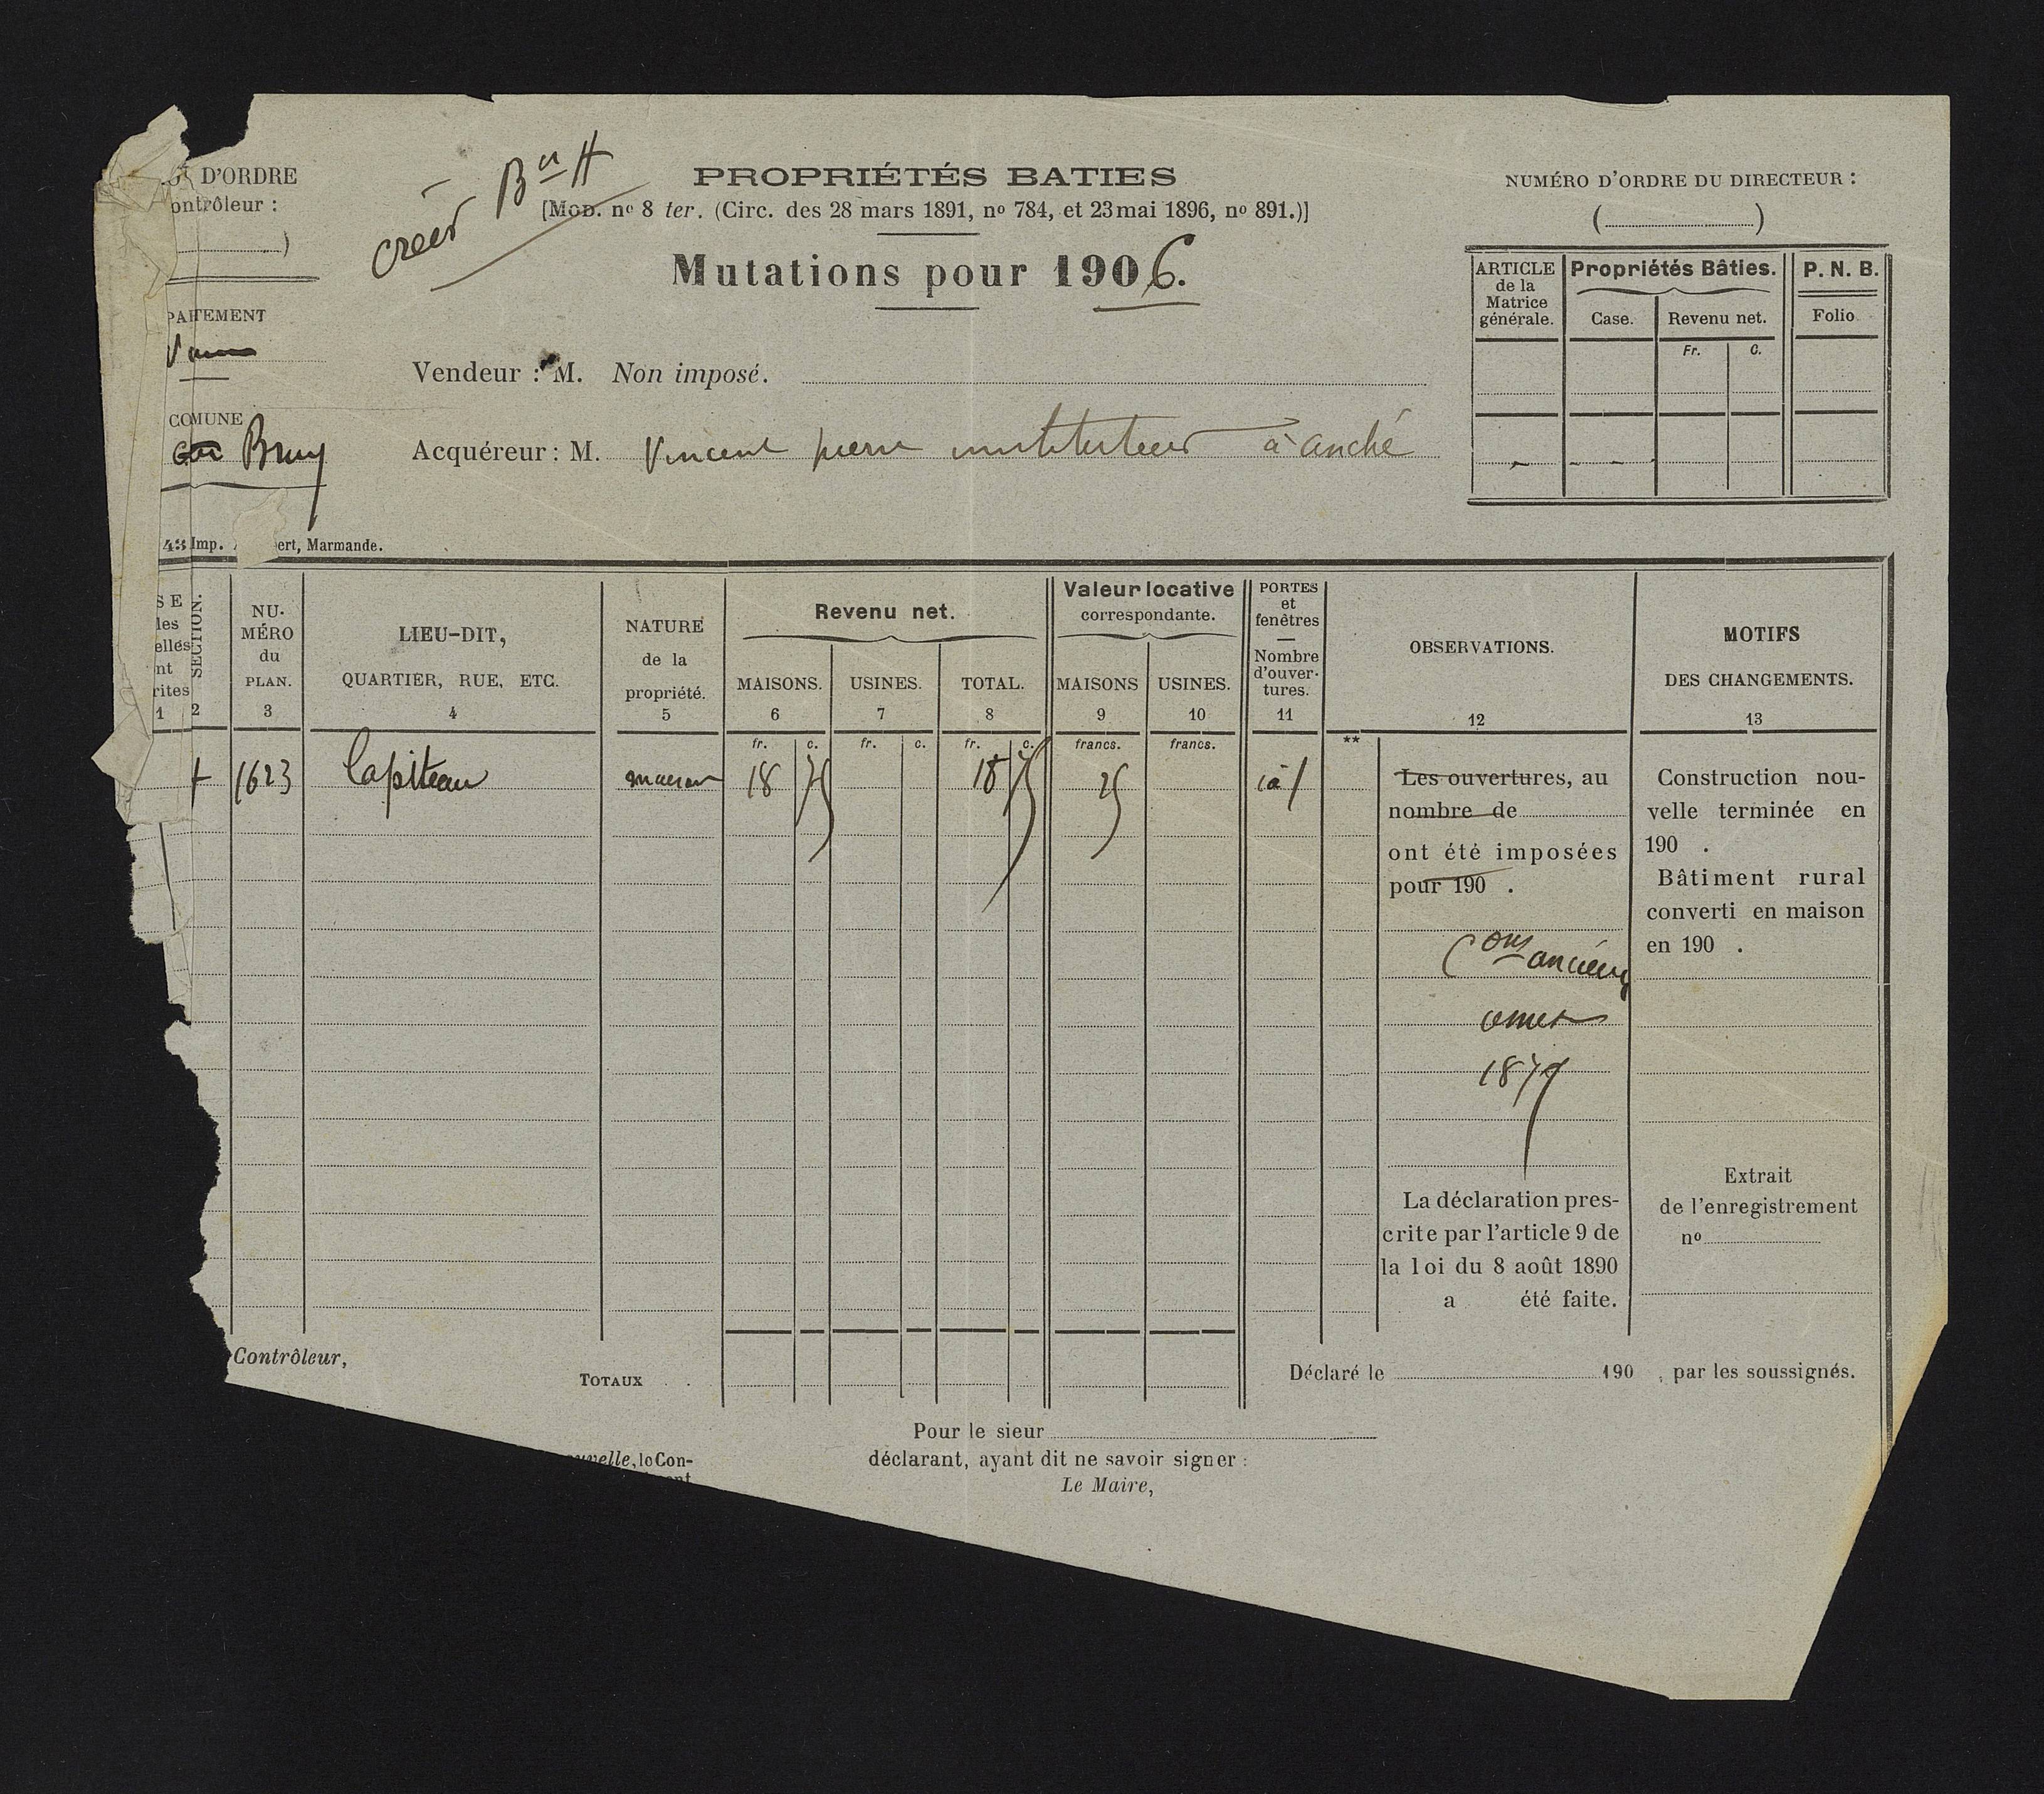 D'ORDRE
ontrôleur :
créer Bon H
PROPRIÉTÉS BATIES
[Mod. no 8 ter. (Circ. des 28 mars 1891, no 784, et 23 mai 1896, no 891.)]
Mutations pour 1906.
NUMÉRO D'ORDRE DU DIRECTEUR :
(..........)
ARTICLE de la Matrice générale. Propriétés Bâties. P. N. B.
Case. Revenu net. Folio
Fr. C.
PARTEMENT
Vendeur : M. Non imposé.
COMUNE
Brux
Acquéreur : M. Vincent pierre instituteur à anché
43 Imp. ert, Marmande.
SE
les
ellés
nt
rites
1
SECTION.
2
NU-
MÉRO
du
PLAN.
3
LIEU-DIT,
QUARTIER, RUE, ETC.
4
NATURE
de la
propriété.
5
Revenu net.
MAISONS. USINES. TOTAL.
6 7 8
Valeur locative
correspondante.
MAISONS USINES.
9 10
PORTES
et
fenêtres
Nombre
d'ouver-
tures.
11
OBSERVATIONS.
12
MOTIFS
DES CHANGEMENTS.
13
fr. c. fr. c. fr. c. francs. francs. **
1623 Capiteau maison 18 75 18 75 25 1 à 1
Les ouvertures, au
nombre de
ont été imposées
pour 190 .
Cons ancienn
omis
1879
La déclaration pres-
crite par l'article 9 de
la loi du 8 août 1890
a été faite.
Construction nou-
velle terminée en
190 .
Bâtiment rural
converti en maison
en 190 .
Extrait
de l'enregistrement
no
Contrôleur,
TOTAUX
Déclaré le 190 , par les soussignés.
Pour le sieur
uvelle, le Con-
déclarant, ayant dit ne savoir signer :
Le Maire,